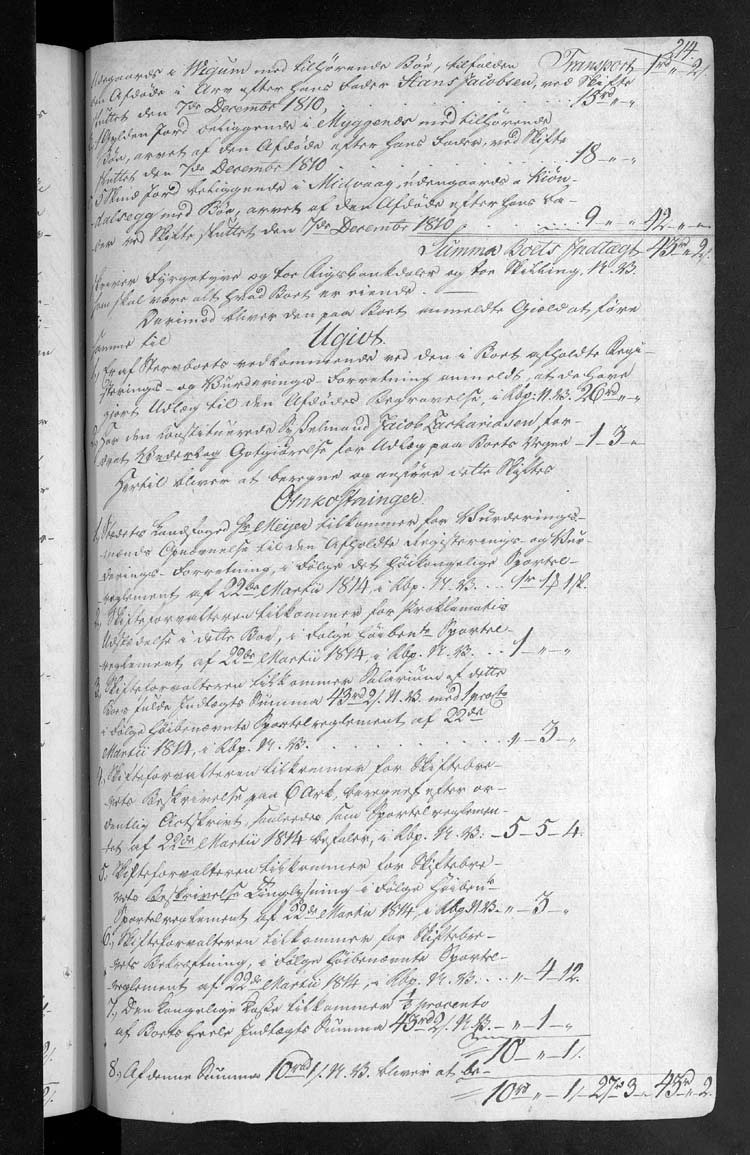 214
udengaards i Migum med tilhørende Bøe, tilfalden Transport 1rd „ 2/.
den Afdøde i Arv efter hans Fader Hans Jacobsen, ved Skifte
sluttet den 7de December 1810, . . . . . 15rd „ „
Gylden Jord beliggende i Myggenæs med tilhørende
Bøe, arvet af den Afdøde efter hans Fader, ved Skifte
sluttet den 7de December 1810 . . . . . 18 „ „
5 Skind Jord beliggende i Midvaag, udengaards a
med Bøe, arvet af den Afdøde efter hans Fa-
der ved Skifte sluttet den 7de December 1810, . . . 9 „ „ 42 „ „
Summa Boets Indtægt 43rd „ 2/.
skriver Fyrgetyve og tre Rigsbankdaler og toe Skilling, N. V.
som skal være alt hvad Boet er eiende.
Derimod bliver den paa Boet anmeldte Gjeld at føre
samme til
Udgivt
1, Er af Stervboets vedkommende ved den i Boet afholdte Regi-
sterings- og Vurderings-Forretning anmeldt, at de have
gjort Udlæg til den Afdødes Begravelse, i Rbp: N. V. 26rd „ „
2, Har den constituerede Sysselmand Jacob Zachariasen for-
Godtgiørelse for Udlæg paa Boets Vegne 1 3 „
Hertil bliver at beregne og anføre dette Skiftes
Omkostninger
1, Stedets Landfoged Hr Meyer tilkommer for Vurderings-
mænds Opnævnelse til den Afholdte Registerings- og Vur-
derings-Forretning, i Følge det høikongelige Sportel-
reglement af 22de Martii 1814, i Rbp. N. V. . . 1r 1 ß 1/.
2, Skifteforvalteren tilkommer for Proklamatis
Udstædelse i dette Boe, i Følge høibente Sportel-
reglement af 22de Martii 1814, i Rbp. N. V. . . 1 „ „
3, Skifteforvalteren tilkommer Salarium af dette
Boes fulde Indtægts Summa 43rd 2/. N. V. med 1 procto
i Følge høibenævnte Sportelreglement af 22de
Martii 1814, i Rbp. N. V. . . . . . „ 3 „
4, Skifteforvalteren tilkommer for Skiftebre-
vets Beskrivelse paa 6 Ark, beregnet efter or-
dentlig Actskrivt, saaledes som Sportelreglemen-
tet af 22de Martii 1814 befaler, i Rbp. N. V: 5 5 4.
5, Skifteforvalteren tilkommer for Skiftebre-
vets Beskrivelse Tinglysning i Følge høiben:
Sportelreglement af 22de Martii 1814, i Rbp N. V. „ 3 „
6, Skifteforvalteren tilkommer for Skiftebre-
vets Bekræftning, i Følge høibenævnte Sportel-
reglement af 22de Martii 1814, i Rbp. N. V. . . „ 4 12.
7, Den kongelige Kasse tilkommer 1/2 procento
af Boets heele Indtægts Summa 43rd 2/. N. V. „ 1 „
10 „ 1/.
8, Af denne Summa 10rd 1/. N. V. bliver at be-
10rd „ 1/. 27rd 3 „ 43rd „ 2.